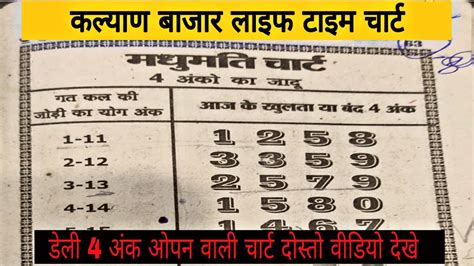 कल्याण बाजार लाइफ टाइम चार्ट
63
मधुमति चार्ट
4 अंको का जादू
गत कल की जोड़ी का योग अंक
आज के खुलता या बंद 4 अंक
1-11 1 2 5 8
2-12 3 3 5 9
3-13 2 5 7 9
4-14 1 5 8 0
1 4 6 7
डेली 4 अंक ओपन वाली चार्ट दोस्तो वीडियो देखे